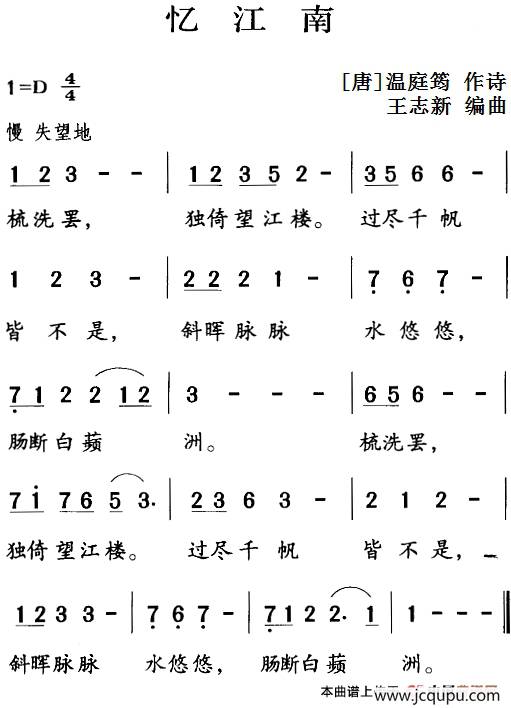 忆 江 南
1=D 4/4
[唐]温庭筠 作诗
王志新 编曲
慢 失望地
1 2 3 - - | 1 2 3 5 2 - | 3 5 6 6 - |
梳洗罢， 独倚望江楼。 过尽千帆
1 2 3 - | 2 2 2 1 - | 7 6 7 - |
皆 不 是， 斜晖脉脉 水悠悠，
7 1 2 2 1 2 | 3 - - - | 6 5 6 - - |
肠断白蘋 洲。 梳洗罢，
7 i 7 6 5 3. | 2 3 6 6 - | 2 1 2 - |
独倚望江楼。 过尽千帆 皆不是，
1 2 3 3 - | 7 6 7 - | 7 1 2 2. 1 | 1 - - - ‖
斜晖脉脉 水悠悠， 肠断白蘋 洲。
本曲谱上
www.jcqupu.com